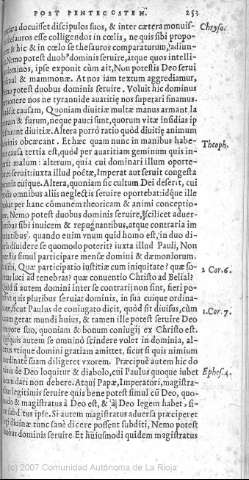 POST PENTECOSTEN. 253
docuisset discipulos suos, & inter cætera monuis-
esse colligendos in cœlis, ne quis sibi propo-
& hic & in cœlo se thesauros comparaturum, adiun-
Nemo potest duob⁹ dominis seruire, atque quos intelli-
ipse exponit cùm ait, Non potestis Deo serui
& mammonæ. At nos iam textum aggrediamur,
potest duobus dominis seruire. Volunt hic
ne nos ne tyrannide auaritię nos superari sinamus.
causam, Quoniam diuitiæ multæ manus armant la
& furum, neque pauci sunt, quorum vitæ insidiæ ip
diuitiæ. Altera porrò ratio quòd diuitię animum
obcæcant. Et hæc quam nunc in manibus habe-
causa tertia est, quòd per auaritiam geminum quis in-
malum: alterum, quia cui dominari illum oporte-
seruit: iuxta illud poëtæ, Imperat aut seruit congesta
cuique. Altera, quoniam sic cultum Dei deserit, cui
omnibus aliis neglectis seruire oportebat: idque ille
per hanc cômunem theoricam & animi conceptio-
Nemo potest duobus dominis seruire, scilicet aduer-
sibi inuicem & repugnantibus, atque contraria im
quando enim vnum quid homo est, in duo di-
seruire se quomodo poterit? iuxta illud Pauli, Non
simul participare mensę domini & dæmoniorum.
Quæ participatio iustitiæ cum iniquitate? quæ so-
luci ad tenebras? quæ conuentio Christi ad Belial?
si autem domini inter se contrarij non sint, fieri po-
quis pluribus seruiat dominis, in sua cuique ordina-
sicut Paulus de coniugato dicit, quòd sit diuisus, cùm
mundi huius, & tamen ille potest seruire Deo
suo, quoniam & bonum coniugij ex Christo est.
autem se omnino scindere volet in dominia, al-
vtique domini gratiam amittet, sicut si quis nimium
diligeret vxorem. Præcipuè autem hic do
de Deo loquitur & diabolo, cui Paulus quoque iubet
dari non debere. Atqui Papæ, Imperatori, magistra-
legitimis seruire quis bene potest simul cū Deo, quo-
& magistratus à Deo est, & à Deo legem habet, si-
ipse. Si autem magistratus aduersa præciperet
tunc sanè dicere possent subditi, Nemo potest
dominis seruire. Et huiusmodi quidem magistratus
Chryso.
Theoph.
2 Cor. 6.
1. Cor. 7.
Ephes. 4.
(c) 2007 Comunidad Autónoma de La Rioja